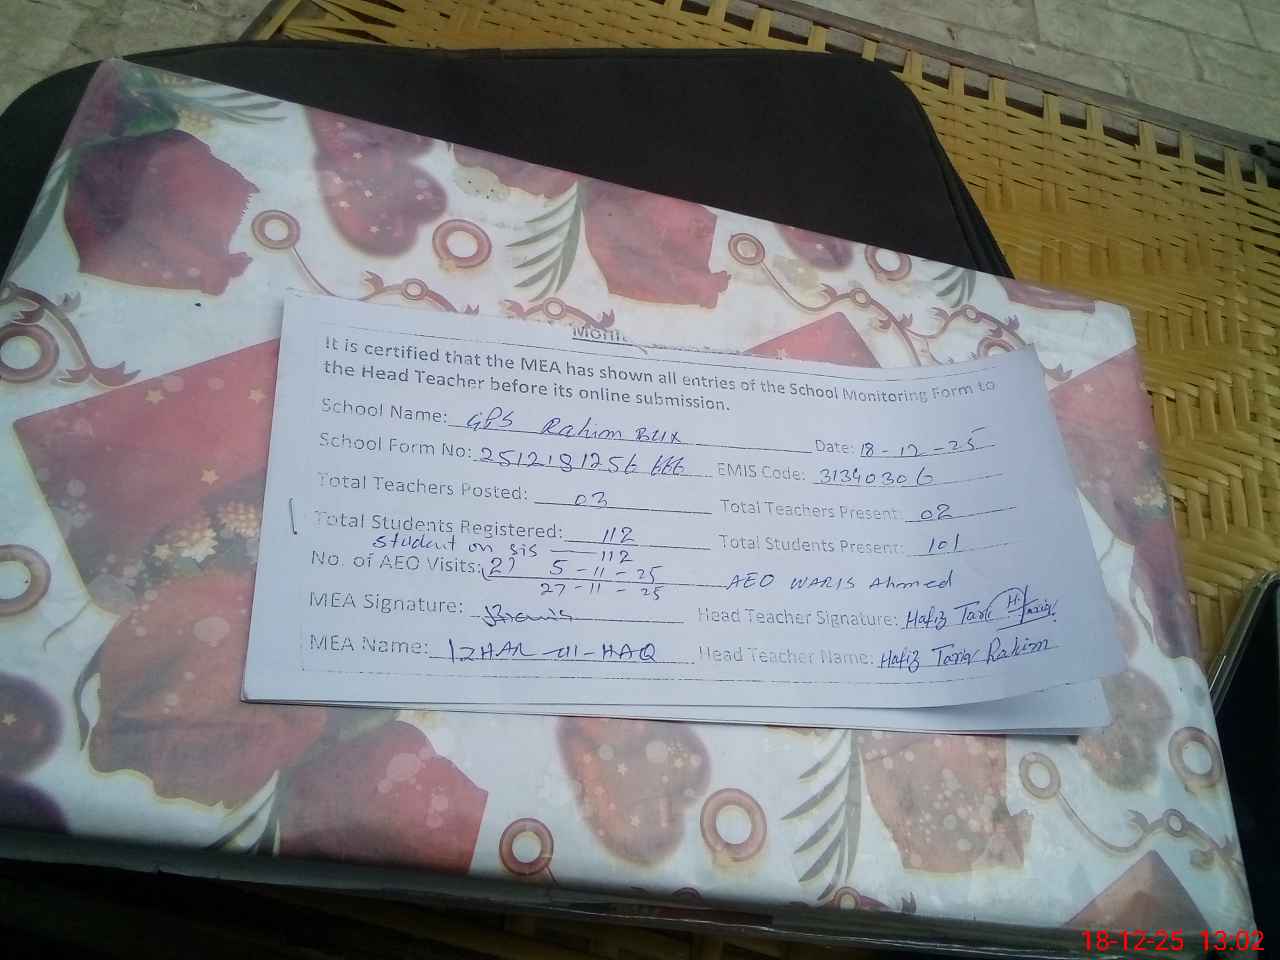 It is certified that the MEA has shown all entries of the School Monitoring Form to
the Head Teacher before its online submission.
School Name: GPS Rahim Bux Date: 18-12-25
School Form No: 2512181256 666 EMIS Code: 31340306
Total Teachers Posted: 03 Total Teachers Present: 02
Total Students Registered: 112 Total Students Present: 101
student on sis — 112
No. of AEO Visits: 5-11-25 AEO WARIS Ahmed
27-11-25
MEA Signature: Head Teacher Signature: Hafiz Tariq
MEA Name: IZHAR-ul-HAQ Head Teacher Name: Hafiz Tariq Rahim
18-12-25 13:02